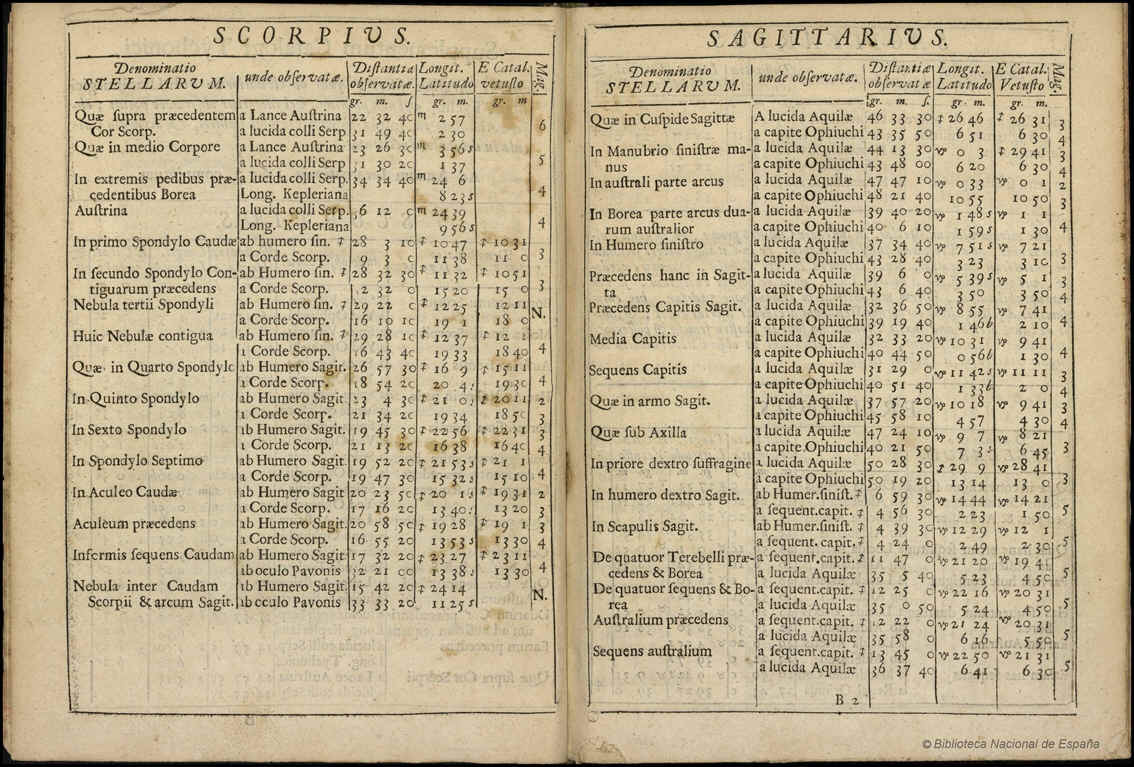 SCORPIUS.
Denominatio STELLARUM. unde observatæ. Distantiæ observatæ. Longit. Latitudo E Catal. vetusto Mag:
gr. m. s. gr. m. gr. m
Quæ supra præcedentem a Lance Austrina 22 32 40 ♏ 2 57
Cor Scorp. a lucida colli Serp 31 49 40 2 30 6
Quæ in medio Corpore a Lance Austrina 23 26 30 ♏ 3 56 s
a lucida colli Serp 31 30 20 1 37 5
In extremis pedibus præ- a lucida colli Serp. 34 34 40 ♏ 24 6
cedentibus Borea Long. Kepleriana 8 23 s 4
Austrina a lucida colli Serp. 36 12 0 ♏ 24 39
Long. Kepleriana 9 56 s 4
In primo Spondylo Caudæ ab humero sin. ♐ 28 3 10 ♐ 10 47 ♐ 10 31
a Corde Scorp. 9 3 0 11 38 11 0 3
In secundo Spondylo Con- ab Humero sin. ♐ 28 32 30 ♐ 11 32 ♐ 10 51
tiguarum præcedens a Corde Scorp. 12 32 0 15 20 15 0 3
Nebula tertii Spondyli ab Humero sin. ♐ 29 22 0 ♐ 12 25 12 11
a Corde Scorp. 16 10 10 19 1 18 0 N.
Huic Nebulæ contigua ab Humero sin. ♐ 29 28 10 ♐ 12 37 ♐ 12 1
a Corde Scorp. 16 43 40 19 33 18 40 4
Quæ in Quarto Spondylo ab Humero Sagit. 26 57 30 ♐ 16 9 ♐ 15 11
a Corde Scorp. 18 54 20 20 4 19 30 4
In Quinto Spondylo ab Humero Sagit 23 4 30 ♐ 21 0 ♐ 20 11 2
a Corde Scorp. 21 34 20 19 34 18 50 3
In Sexto Spondylo ab Humero Sagit. 19 45 30 ♐ 22 56 ♐ 22 31 3
a Corde Scorp. 21 13 20 16 38 16 40 4
In Spondylo Septimo ab Humero Sagit. 19 52 20 ♐ 21 53 s ♐ 21 1 3
a Corde Scorp. 19 47 30 15 32 s 15 10 4
In Aculeo Caudæ ab Humero Sagit 20 23 50 ♐ 20 1 s ♐ 19 31 2
a Corde Scorp. 17 16 20 13 40 13 20 3
Aculeum præcedens ab Humero Sagit. 20 58 50 ♐ 19 28 ♐ 19 1 3
a Corde Scorp. 16 55 20 13 53 s 13 30 4
Informis sequens Caudam ab Humero Sagit 17 32 20 ♐ 23 27 ♐ 23 11
ab oculo Pavonis 32 21 00 13 38 s 13 30 4
Nebula inter Caudam ab Humero Sagit. 15 42 20 ♐ 24 14
Scorpii & arcum Sagit. ab oculo Pavonis 33 33 20 11 25 s N.
SAGITTARIUS.
Denominatio STELLARUM. unde observatæ. Distantiæ observatæ Longit. Latitudo E Catal. Vetusto Mag:
gr. m. s. gr. m. gr. m.
Quæ in Cuspide Sagittæ A lucida Aquilæ 46 33 30 ♐ 26 46 ♐ 26 31 3
a capite Ophiuchi 43 35 50 6 51 6 30 4
In Manubrio sinistræ ma- a lucida Aquilæ 44 13 30 ♑ 0 3 ♐ 29 41 3
nus a capite Ophiuchi 43 48 00 6 20 6 30 4
In australi parte arcus a lucida Aquilæ 47 47 10 ♑ 0 33 ♑ 0 1 2
a capite Ophiuchi 48 21 40 10 55 10 50 3
In Borea parte arcus dua- a lucida Aquilæ 39 40 20 ♑ 1 48 s ♑ 1 1
rum australior a capite Ophiuchi 40 6 10 1 59 s 1 30 4
In Humero sinistro a lucida Aquilæ 37 34 40 ♑ 7 51 s ♑ 7 21
a capite Ophiuchi 43 28 40 3 23 3 10 3
Præcedens hanc in Sagit- a lucida Aquilæ 39 6 0 ♑ 5 39 s ♑ 5 1 3
ta a capite Ophiuchi 43 6 40 3 50 3 50 4
Præcedens Capitis Sagit. a lucida Aquilæ 32 36 50 ♑ 8 55 ♑ 7 41
a capite Ophiuchi 39 19 40 1 46 b 2 10 4
Media Capitis a lucida Aquilæ 32 33 20 ♑ 10 31 ♑ 9 41
a capite Ophiuchi 40 44 50 0 56 b 1 30 4
Sequens Capitis a lucida Aquilæ 31 29 0 ♑ 11 42 s ♑ 11 11 3
a capite Ophiuchi 40 51 40 1 33 b 2 0 4
Quæ in armo Sagit. a lucida Aquilæ 37 57 20 ♑ 10 18 ♑ 9 41 3
a capite Ophiuchi 45 58 10 4 57 4 30 4
Quæ sub Axilla a lucida Aquilæ 47 24 10 ♑ 9 7 ♑ 8 21
a capite Ophiuchi 40 21 50 7 3 s 6 45 3
In priore dextro suffragine a lucida Aquilæ 50 28 30 ♐ 29 9 ♑ 28 41
a capite Ophiuchi 50 19 20 13 14 13 0 3
In humero dextro Sagit. ab Humer. sinist. ♐ 6 59 30 ♑ 14 44 ♑ 14 21
a sequent. capit. ♐ 4 56 30 2 23 1 50 5
In Scapulis Sagit. ab Humer. sinist. ♐ 4 39 30 ♑ 12 29 ♑ 12 1
a sequent. capit. ♐ 4 24 0 2 49 2 30 5
De quatuor Terebelli præ- a sequent. capit. ♐ 11 47 0 ♑ 21 20 ♑ 19 41
cedens & Borea a lucida Aquilæ 35 5 40 5 23 4 50 5
De quatuor sequens & Bo- a sequent. capit. ♐ 12 25 0 ♑ 22 16 ♑ 20 31
rea a lucida Aquilæ 35 0 50 5 24 4 50 5
Australium præcedens a sequent. capit. ♐ 12 22 0 ♑ 21 24 ♑ 20 31
a lucida Aquilæ 35 58 0 6 16 5 50 5
Sequens australium a sequent. capit. ♐ 13 45 0 ♑ 22 50 ♑ 21 31
a lucida Aquilæ 36 37 40 6 41 6 30 5
B 2
© Biblioteca Nacional de España